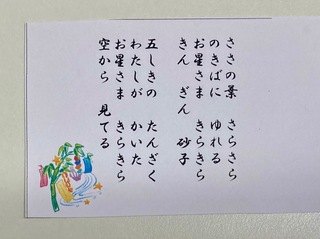 ささの葉 さらさら
のきばに ゆれる
お星さま きらきら
きん ぎん 砂子
五しきの たんざく
わたしが かいた
お星さま きらきら
空から 見てる